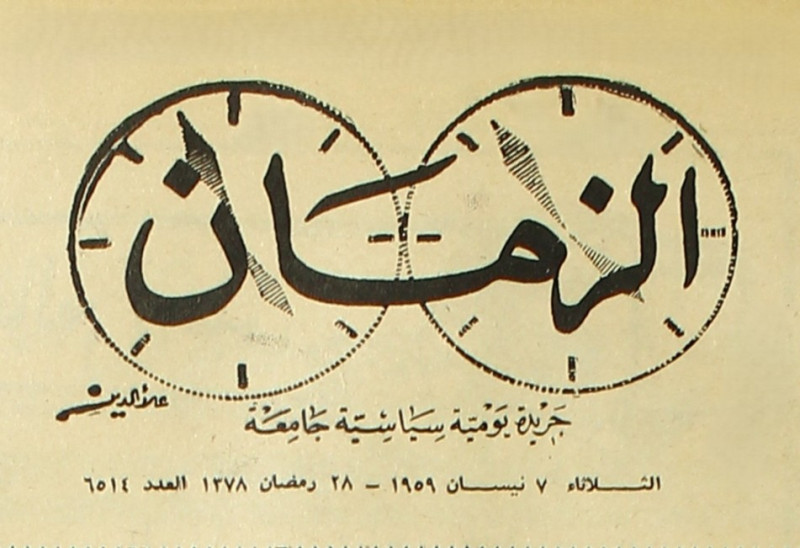 الزمان
علاء الدين
جريدة يومية سياسية جامعة
الثلاثاء ٧ نيسان ١٩٥٩ – ٢٨ رمضان ١٣٧٨ العدد ٦٥١٤